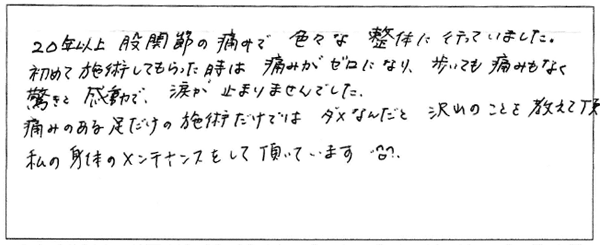 20年以上 股関節の痛みで 色々な 整体に行っていました。
初めて施術してもらった時は 痛みがゼロになり、歩いても 痛みもなく
驚きと 感動で、涙が 止まりませんでした。
痛みのある足だけの施術だけでは ダメなんだと 沢山のことを教えて頂
私の身体のメンテナンスをして頂いています